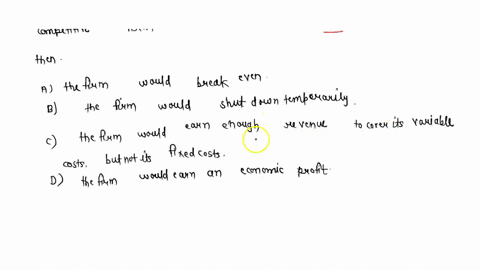 competitive
then.
A) the firm would break even.
B) the firm would shut down temporarily.
C) the firm would earn enough revenue to cover its variable
costs. but not its fixed costs.
D) the firm would earn an economic profit.